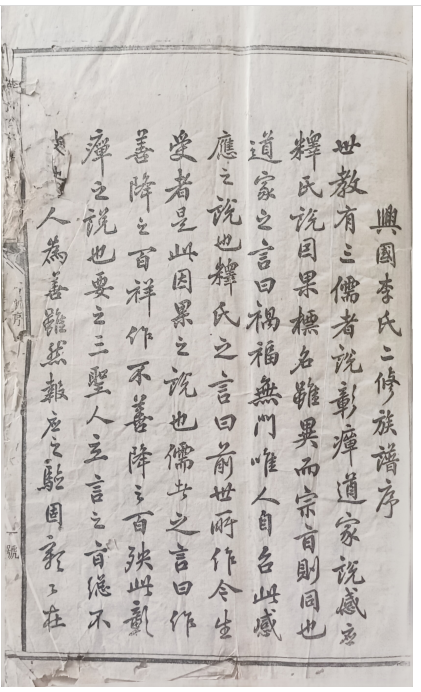 興國李氏二修族譜序
世教有三儒者說彰癉道家說感應
釋氏說因果標名雖異而宗旨則同也
道家之言曰禍福無門唯人自召此感
應之說也釋氏之言曰前世所作今生
受者是此因果之說也儒者之言曰作
善降之百祥作不善降之百殃此彰
癉之說也要之三聖人立言之旨總不
人為善雖然報应之驗固彰々在
序
一號